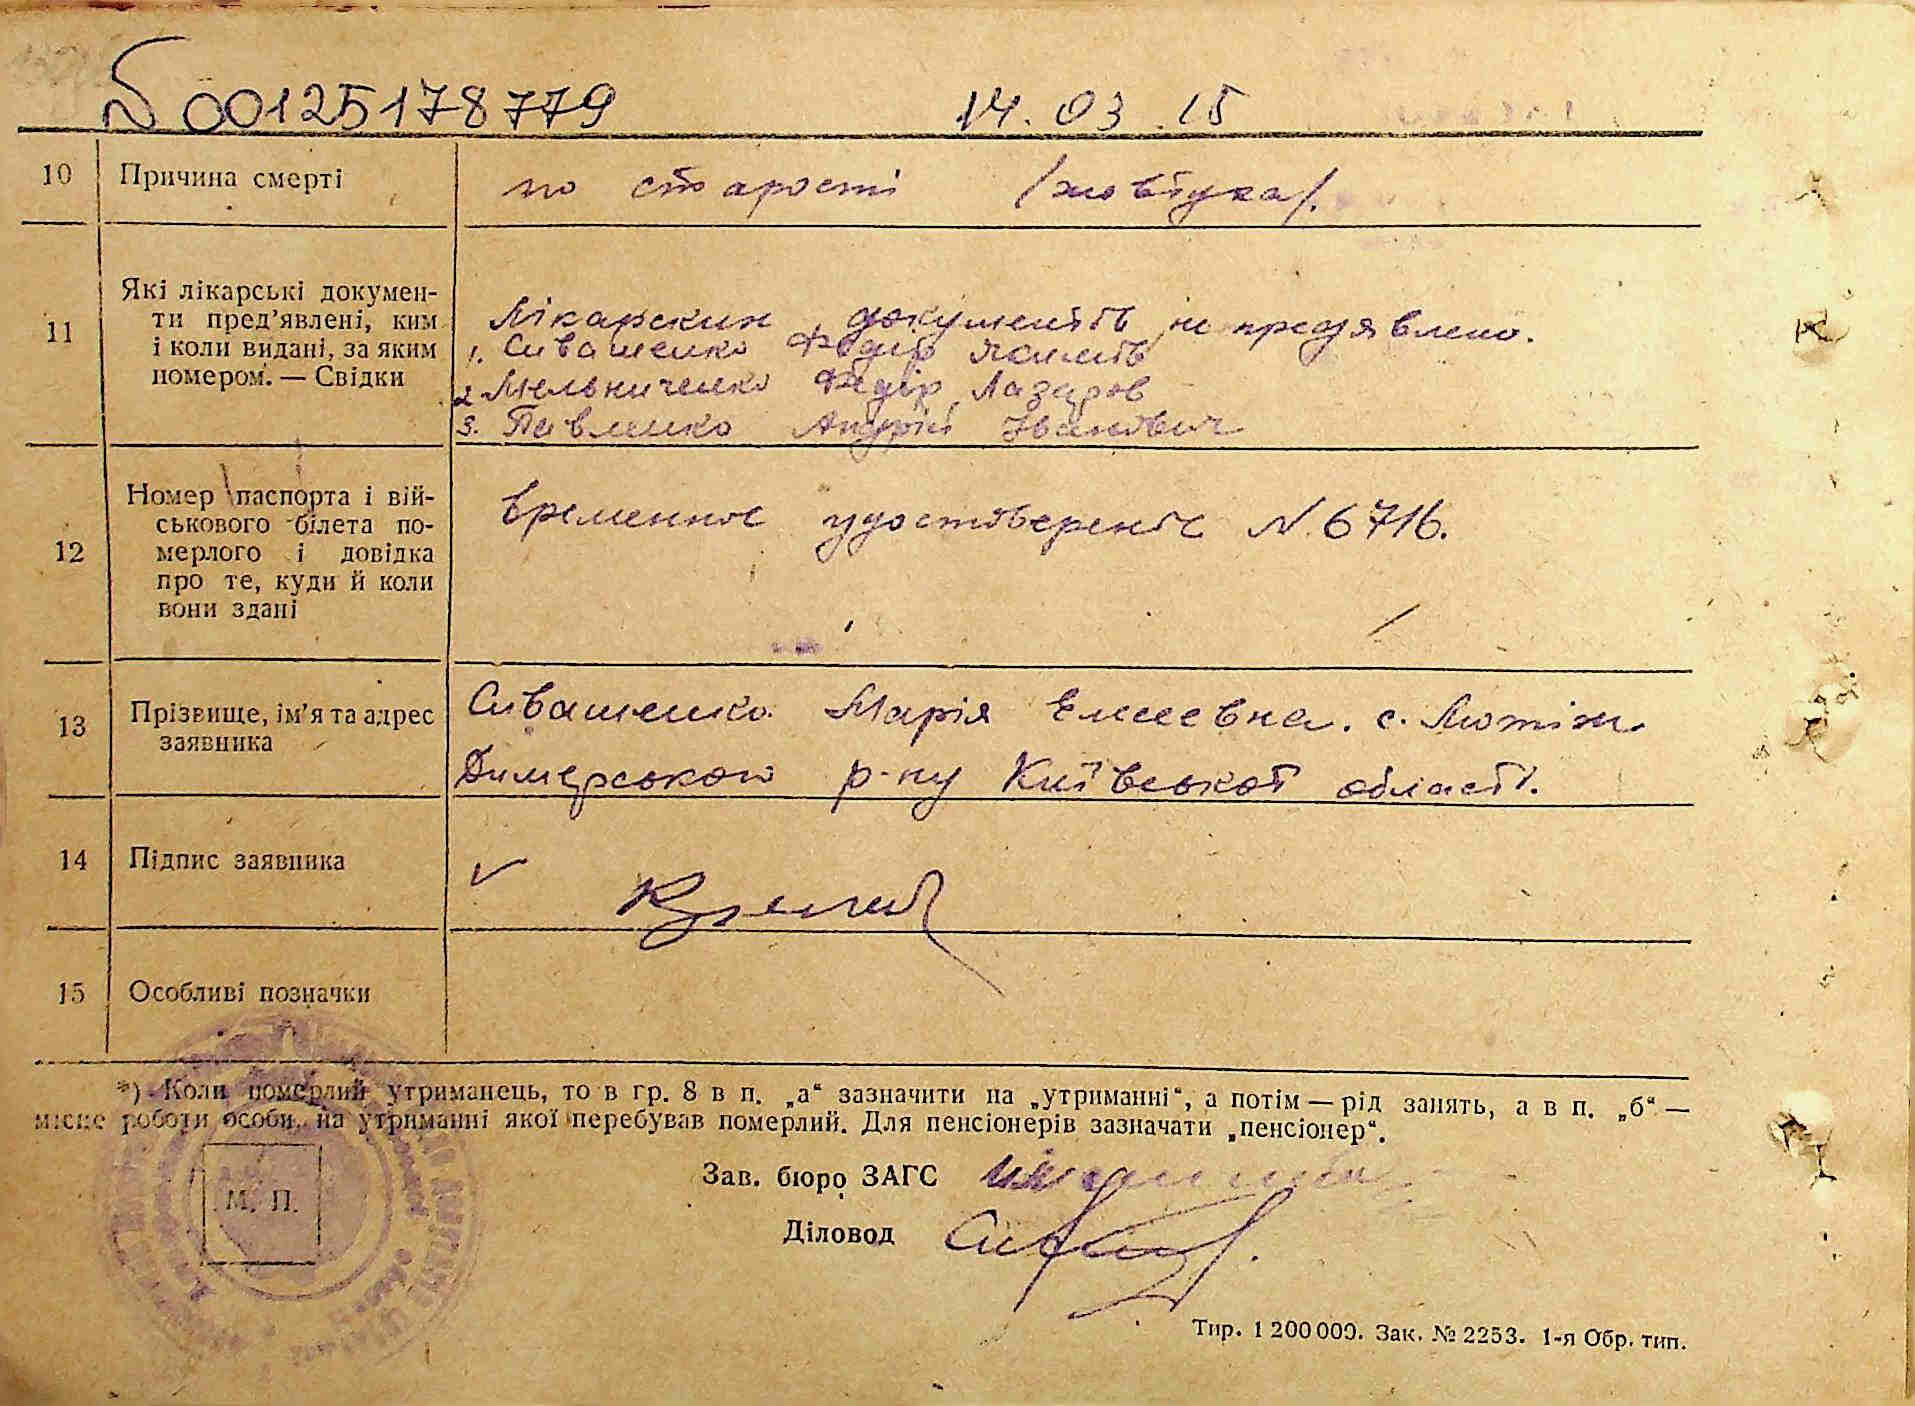 № 00125178779 14.03.15
10 Причина смерті по старості /жовтуха/.
11 Які лікарські докумен-
ти пред’явлені, ким
і коли видані, за яким
номером. — Свідки
Лікарских документів не предявлено.
1. Сивашенко Федір
2. Мельниченко Федір Лазаров
3. Павленко Андрій Іванович
12 Номер паспорта і вій-
ськового білета по-
мерлого і довідка
про те, куди й коли
вони здані
временное удостоверен N. 6716.
13 Прізвище, ім’я та адрес
заявника
Сивашенко Марія Елисеевна. с. Лютіж
Димерського р-ну Київської області.
14 Підпис заявника
15 Особливі позначки
*) Коли померлий утриманець, то в гр. 8 в п. „а“ зазначити на „утриманні“, а потім — рід занять, а в п. „б“ —
місце роботи особи, на утриманні якої перебував померлий. Для пенсіонерів зазначати „пенсіонер“.
М. П.
Зав. бюро ЗАГС
Діловод
Тир. 1 200 000. Зак. № 2253. 1-я Обр. тип.